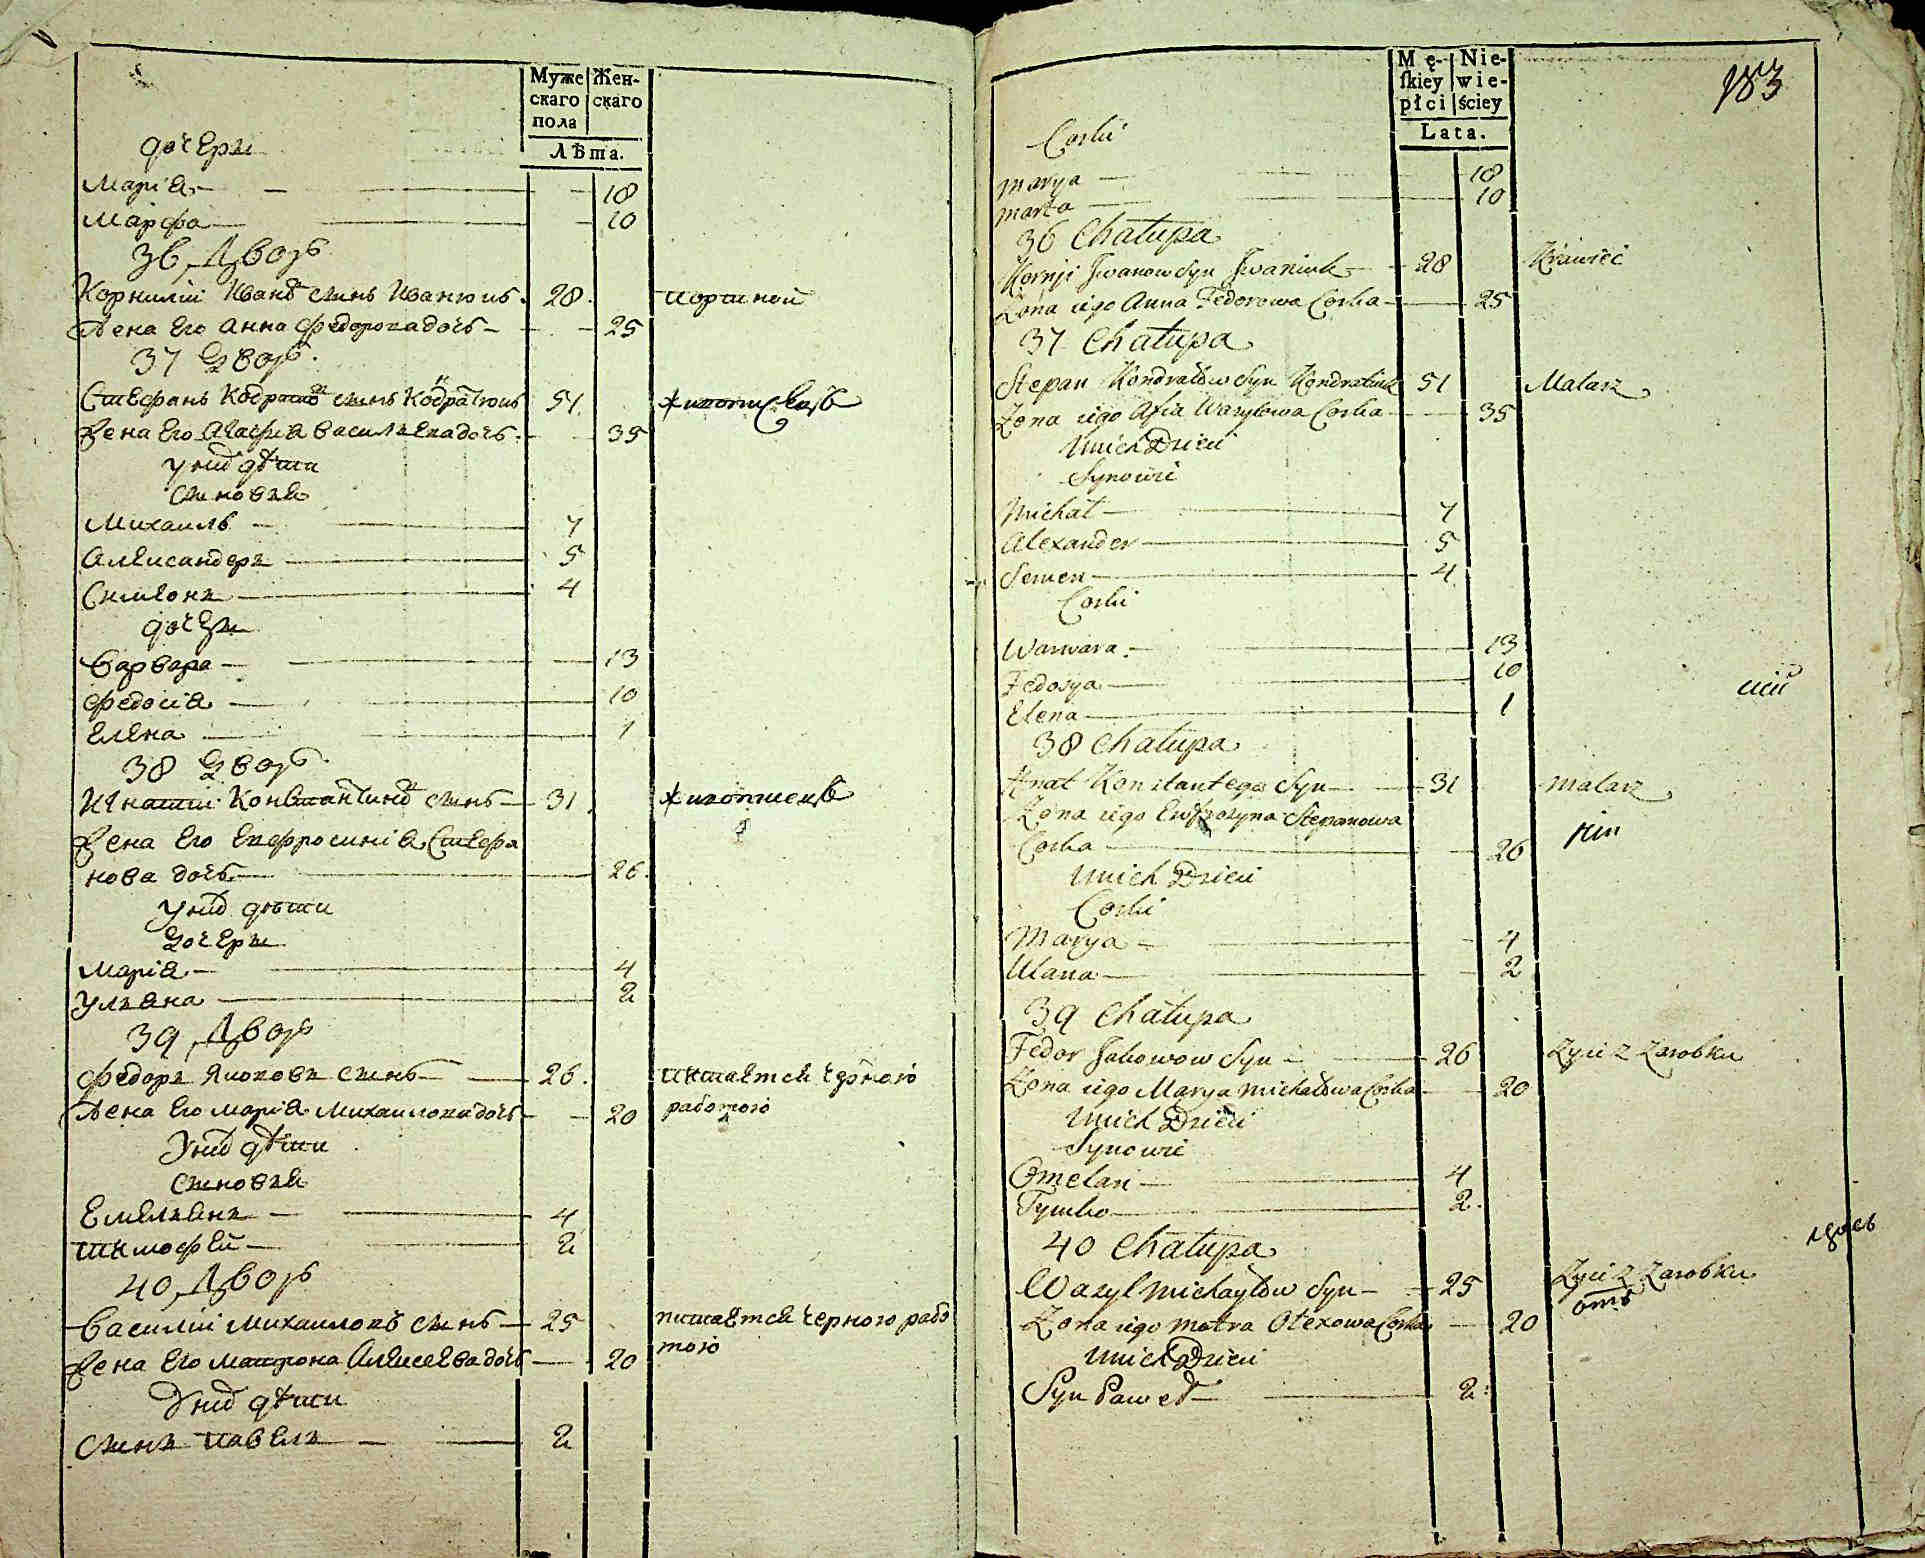 Муже
скаго
пола
Жен-
скаго
Лѣта.
дочеры
Марія 18
Марфа 10
36 Дворъ
Корнилій Ивановъ сынъ Иванюкъ 28 портной
Жена его Анна Федорова дочь 25
37 Дворъ
Стефанъ Кодратовъ сынъ Кодратюкъ 51 живописецъ
Жена его Агафія Васильева дочь 35
у нихъ дѣти
сыновья
Михаилъ 7
Александеръ 5
Симеонъ 4
дочеры
Варвара 13
Федосія 10
Елена 1
38 Дворъ
Игнатій Константиновъ сынъ 31 живописецъ
Жена его Евфросинія Стефа
нова дочь 26
у нихъ дѣти
Дочеры
Марія 4
Ульяна 2
39 Дворъ
Федоръ Якововъ сынъ 26 питается черною
Жена его Марія Михаилова дочь 20 работою
У нихъ дѣти
сыновья
Емельянъ 4
Тимофей 2
40 Дворъ
Василій Михаиловъ сынъ 25 питается черною рабо
тою
Жена его Матрона Алексеева дочь 20
У нихъ дѣти
сынъ Павелъ 2
Mę-
skiey
płci
Nie-
wie-
ściey
Lata.
183
Corki
Marya 18
Marta 10
36 Chałupa
Kornji Iwanow Syn Iwaniuk 28 Krawiec
Żona iego Anna Fedorowa Corka 25
37 Chałupa
Stepan Kondratow Syn Kondratiuk 51 Malarz
Żona iego Afia Wasylowa Corka 35
U nich Dzieci
Synowie
Michał 7
Alexander 5
Semen 4
Corki
Warwara 13
Fedosya 10
Elena 1
38 Chałupa
Hnat Konstantego Syn 31 Malarz
Żona iego Eufrozyna Stepanowa
Corka 26
U nich Dzieci
Corki
Marya 4
Ulana 2
39 Chałupa
Fedor Jakowow Syn 26 Żyie z Zarobku
Żona iego Marya Michałowa Corka 20
U nich Dzieci
Synowie
Omelan 4
Tymko 2
40 Chałupa
Wasyl Michayłow Syn 25 Żyie z Zarobku
Żona iego Motra Olexowa Corka 20
U nich Dzieci
Syn Paweł 2